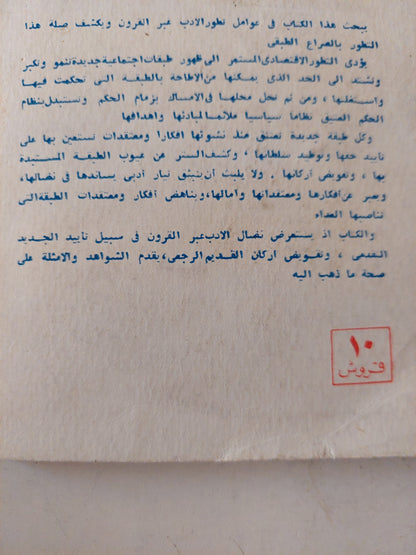 يبحث هذا الكتاب فى عوامل تطور الادب عبر القرون ويكشف صلة هذا
التطور بالصراع الطبقى
يؤدى التطور الاقتصادى المستمر الى ظهور طبقات اجتماعية جديدة تنمو وتكبر
وتشتد الى الحد الذى يمكنها من الاطاحة بالطبقة التى تحكمت فيها
واستغلتها ، ومن ثم تحل محلها فى الامساك بزمام الحكم وتستبدل بنظام
الحكم العتيق نظاما سياسيا ملائما لمبادئها واهدافها
وكل طبقة جديدة تعتنق منذ نشوئها أفكارا ومعتقدات تستعين بها على
تأييد حقها وتوطيد سلطانها ، وكشف الستر عن عيوب الطبقة المستبدة
بها ، وتقويض أركانها . ولا يلبث أن ينبثق تيار أدبى يساندها فى نضالها،
ويعبر عن أفكارها ومعتقداتها وآمالها، ويناهض أفكار ومعتقدات الطبقة التى
تناصبها العداء
والكتاب اذ يستعرض نضال الادب عبر القرون فى سبيل تأييد الجديد
التقدمى ، وتقويض اركان القديم الرجعى، يقدم الشواهد والامثلة على
صحة ما ذهب اليه
١٠
قروش